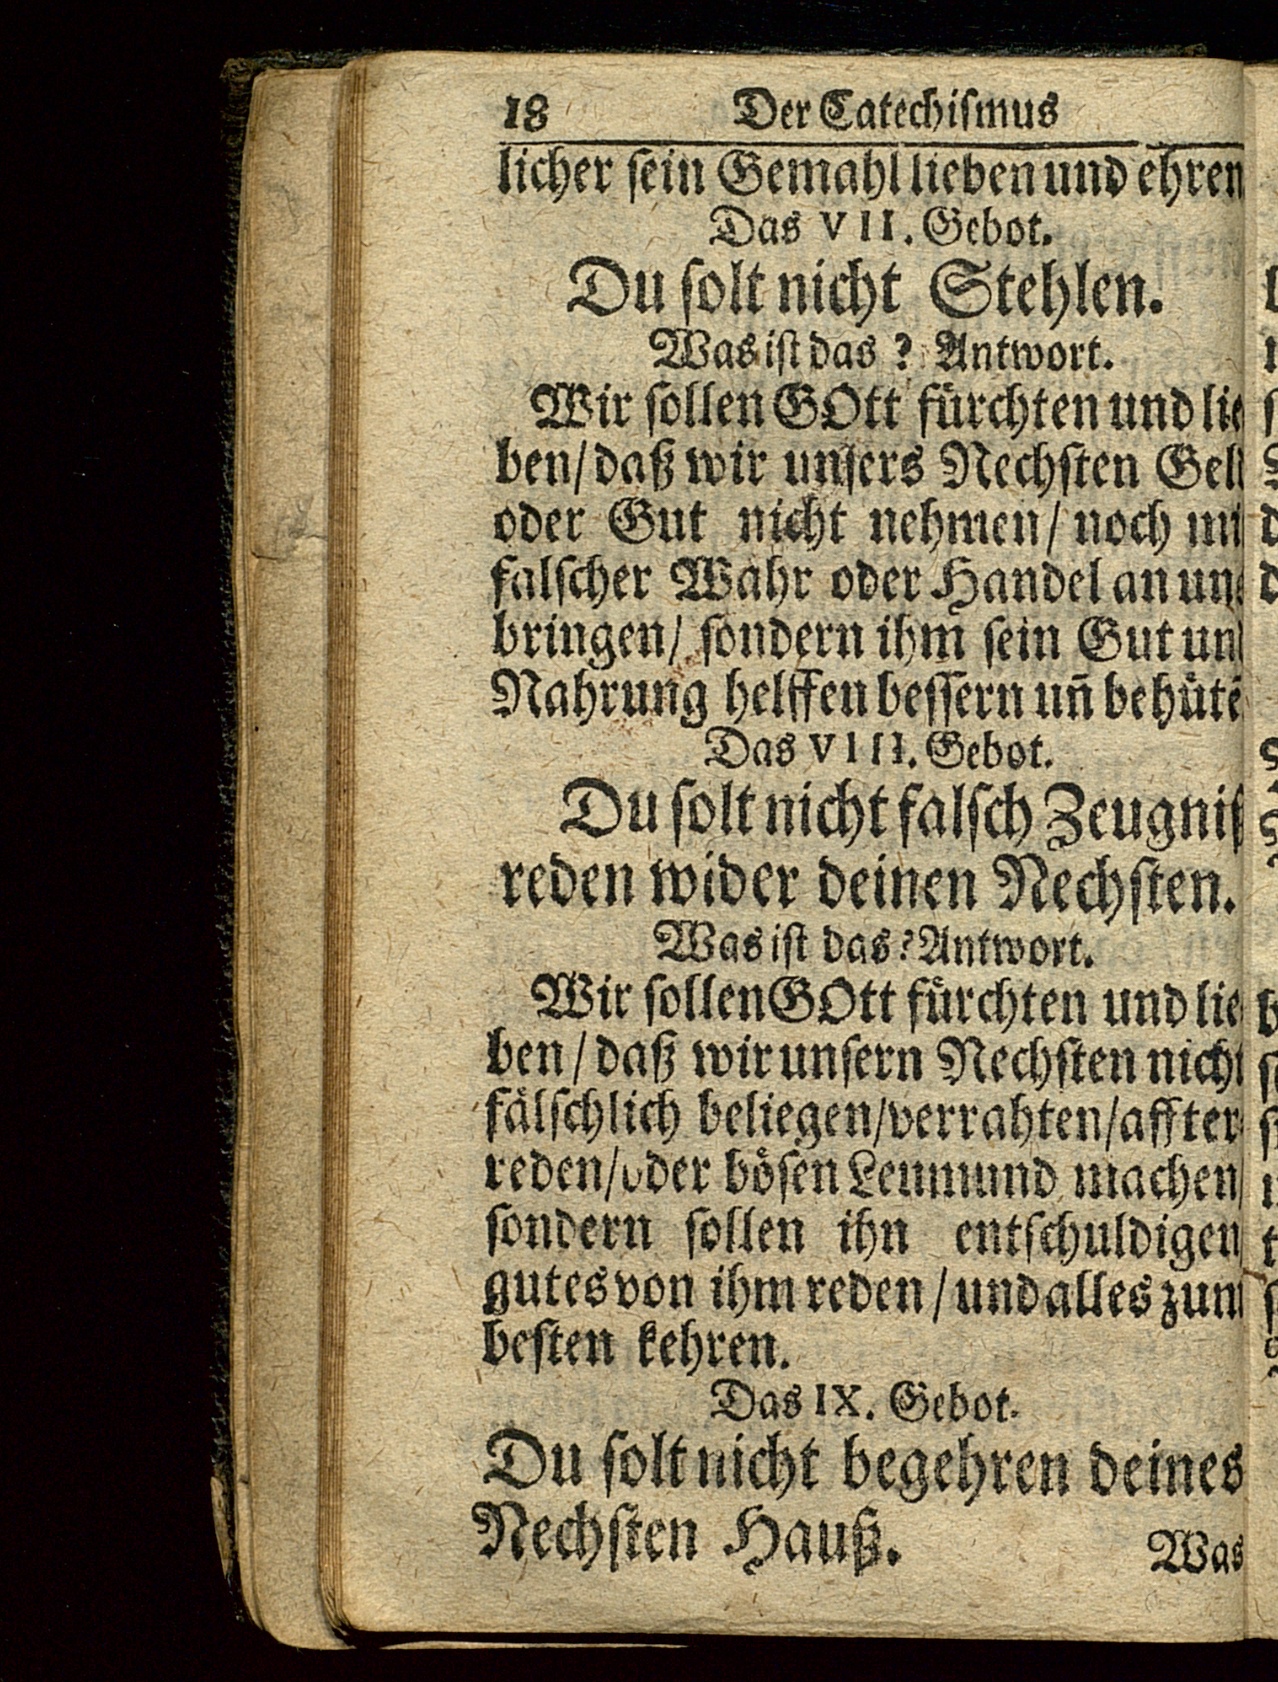 18 Der Catechismus
licher sein Gemahl lieben und ehren
Das VII. Gebot.
Du solt nicht Stehlen.
Was ist das? Antwort.
Wir sollen GOtt fürchten und lie
ben/ daß wir unsers Nechsten Gel
oder Gut nicht nehmen/ noch mi
falscher Wahr oder Handel an un
bringen/ sondern ihm sein Gut un
Nahrung helffen bessern uñ behütẽ
Das VIII. Gebot.
Du solt nicht falsch Zeugniß
reden wider deinen Nechsten.
Was ist das? Antwort.
Wir sollen GOtt fürchten und lie
ben/ daß wir unsern Nechsten nicht
fälschlich beliegen/verrahten/affter
reden/oder bösen Leumund machen
sondern sollen ihn entschuldigen
gutes von ihm reden/ und alles zum
besten kehren.
Das IX. Gebot.
Du solt nicht begehren deines
Nechsten Hauß.
Was